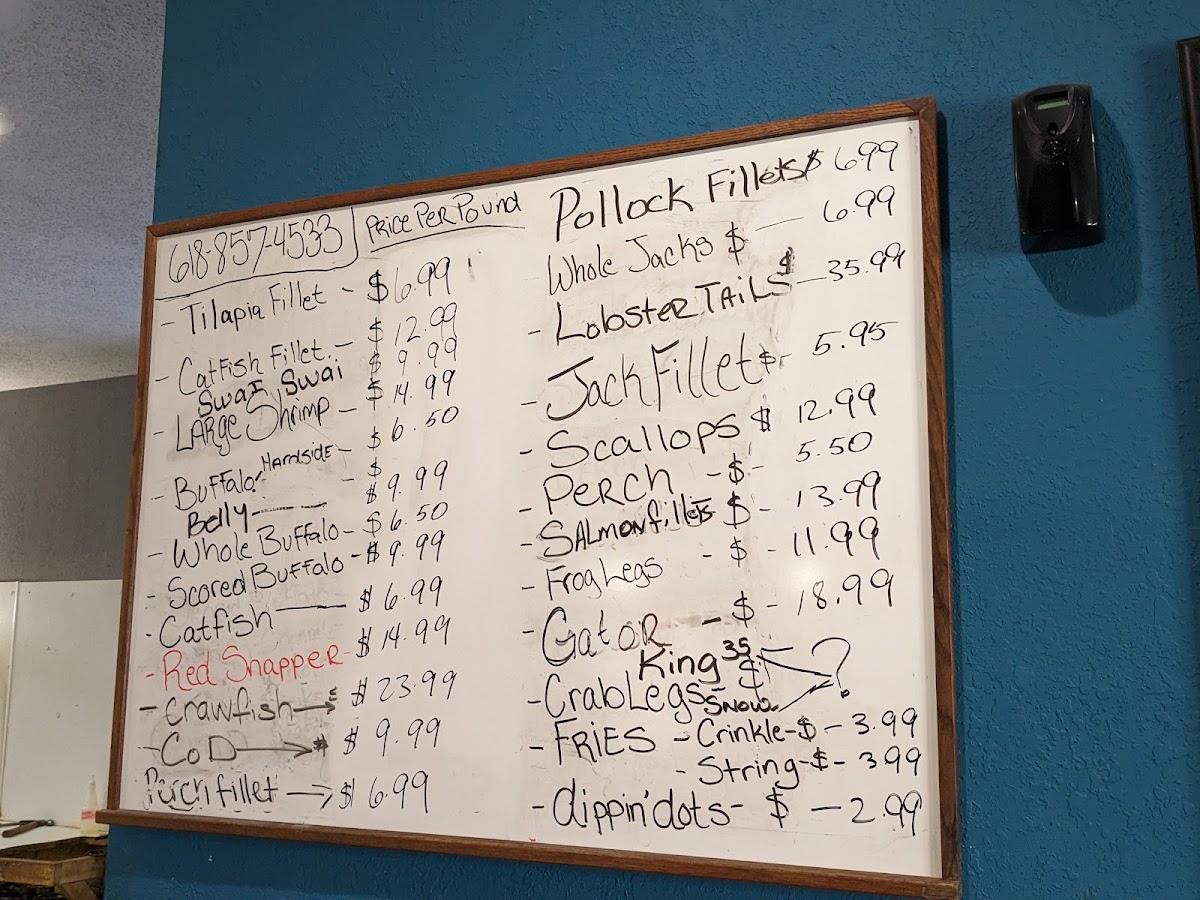 618-857-4533 Price Per Pound
- Tilapia Fillet - $6.99
- Catfish Fillet. - $12.99
Swai Swai $9.99
- LARge Shrimp - $14.99
- Buffalo Handside - $6.50
Belly - $9.99
- Whole Buffalo - $6.50
- Scored Buffalo - $9.99
- Catfish $6.99
- Red Snapper - $14.99
- Crawfish → $23.99
- CoD → $9.99
Perch fillet → $6.99
Pollock Fillets $6.99
Whole Jacks $ - 6.99
- LobsterTAiLS $ - 35.99
- Jack Fillet $ - 5.95
- Scallops $12.99
- PERCH - $ - 5.50
- SALmon fillets $ - 13.99
- Frog Legs - $ - 11.99
- GatoR - $ - 18.99
King 35 $ ?
- Crab Legs - Snow
- FRiES - Crinkle - $ - 3.99
- String - $ - 3.99
- dippin' dots - $ - 2.99